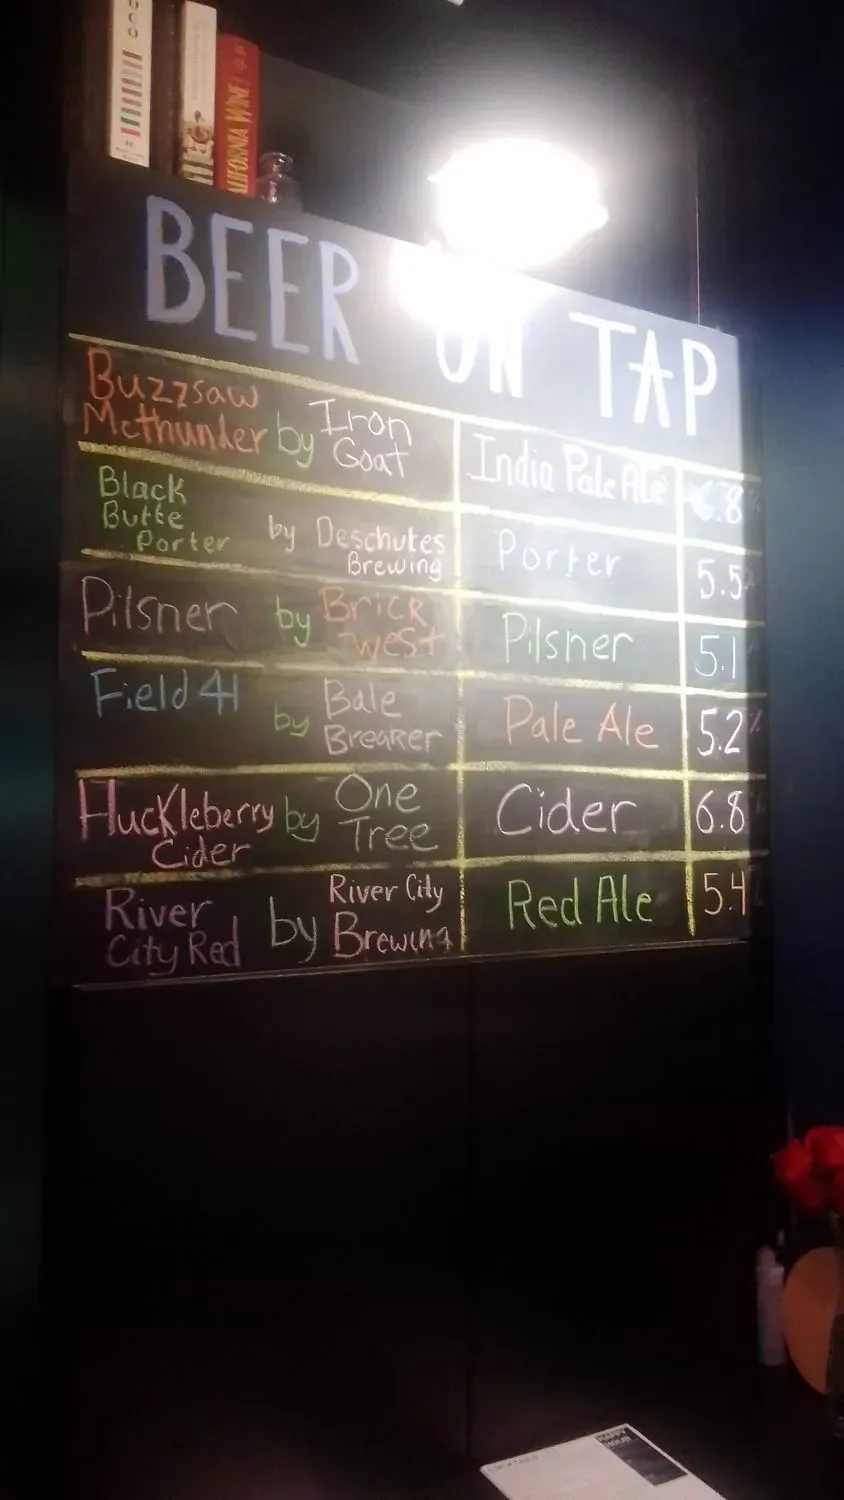 CALIFORNIA WINE
BEER ON TAP
Buzzsaw
McThunder by Iron
Goat
India Pale Ale
6.8%
Black
Butte
Porter
by Deschutes
Brewing
Porter
5.5%
Pilsner by Brick
West
Pilsner
5.1%
Field 41
by Bale
Breaker
Pale Ale
5.2%
Huckleberry
Cider
by One
Tree
Cider
6.8%
River
City Red
by River City
Brewing
Red Ale
5.4%
HAPPY
HOUR